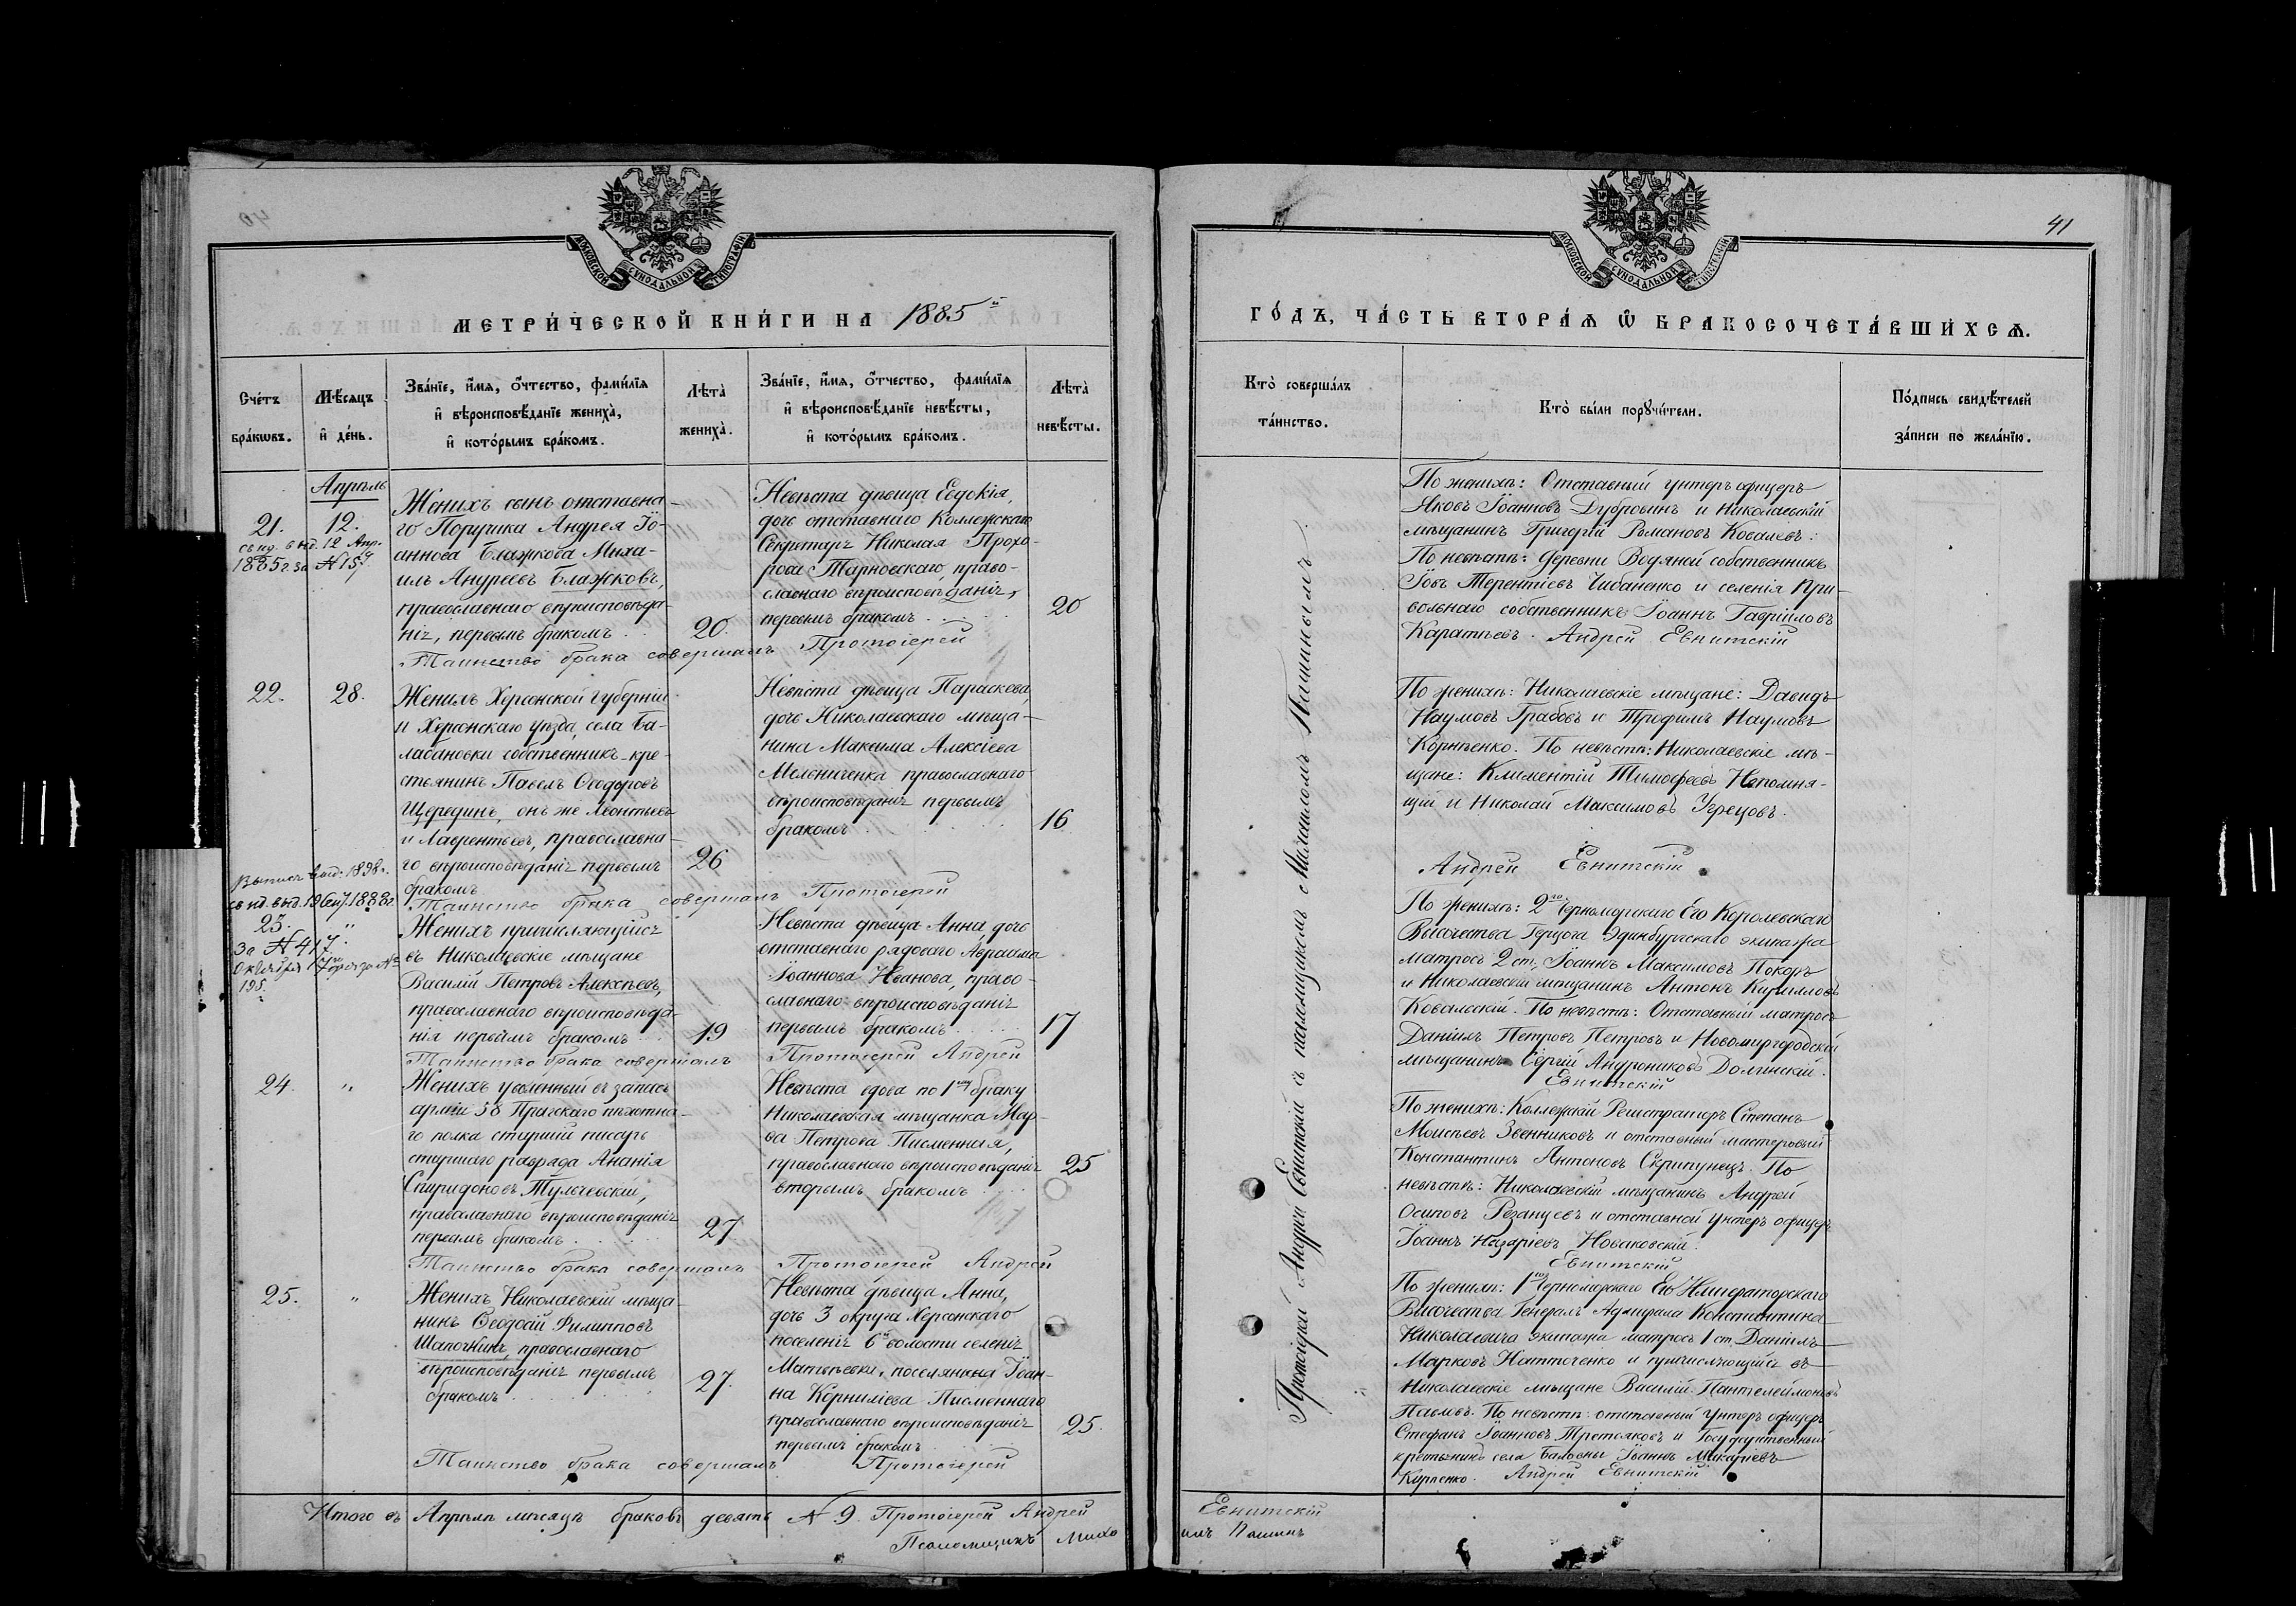 40
МОСКОВСКОЙ СѴНОДАЛЬНОЙ ТИПОГРАФІИ
МЕТРИ́ЧЕСКОЙ КНИ́ГИ НА 1885й
Сче́тъ бра́кѡвъ.
Мѣ́сяцъ и҆ де́нь.
Зва́нїе, и҆́мя, ѻ҆́тчество, фамѝлїя
и҆ вѣроисповѣ́данїе жениха̀,
и҆ кото́рымъ бра́комъ.
Лѣта̀ жениха̀.
Зва́нїе, и҆́мя, ѻ҆́тчество, фамѝлїя
и҆ вѣроисповѣ́данїе невѣ́сты,
и҆ кото́рымъ бра́комъ.
Лѣта̀ невѣ́сты.
Апрѣль
21. 12.
свид. выд. 12 Апр.
1885 г. за №157
Женихъ сынъ отставна-
го Поручика Андрея Іо-
аннова Блажкова Миха-
илъ Андреевъ Блажковъ,
православнаго вѣроисповѣда-
нія, первымъ бракомъ . .
20.
Невѣста дѣвица Евдокія,
дочь отставнаго Коллежскаго
Секретаря Николая Прохо-
рова Тарновскаго, право-
славнаго вѣроисповѣданія,
первымъ бракомъ . . .
20
Таинство брака совершалъ Протоіерей
22. 28.
Женихъ Херсонской губерніи
и Херсонскаго уѣзда, села Ба-
лабановки собственникъ-кре-
стьянинъ Павелъ Ѳеодоровъ
Щерединъ, онъ же Леонтьевъ
и Лаврентьевъ, православна-
го вѣроисповѣданія первымъ
бракомъ
26
Невѣста дѣвица Параскева,
дочь Николаевскаго мѣща-
нина Максима Алексіева
Мельниченка православнаго
вѣроисповѣданія первымъ
бракомъ . . . .
16
Таинство брака совершалъ Протоіерей
Выпись выд. 1898 г.
23. "
За №417.
195.
Женихъ причисляющійся
въ Николаевскіе мѣщане
Василій Петровъ Алексѣевъ,
православнаго вѣроисповѣда-
нія первымъ бракомъ . .
19
Невѣста дѣвица Анна, дочь
отставнаго рядоваго Авраама
Іоаннова Иванова, право-
славнаго вѣроисповѣданія
первымъ бракомъ . . . .
17
Таинство брака совершалъ Протоіерей Андрей
24. "
Женихъ уволенный въ запасъ
арміи 58 Прагскаго пѣхотна-
го полка старшій писарь
старшаго разряда Ананія
Спиридоновъ Тульчевскій,
православнаго вѣроисповѣданія
первымъ бракомъ . . . .
27
Невѣста вдова по 1му браку
Николаевская мѣщанка Мар-
ѳа Петрова Писменная,
православнаго вѣроисповѣданія
вторымъ бракомъ . . .
25
Таинство брака совершалъ Протоіерей Андрей
25. "
Женихъ Николаевскій мѣща-
нинъ Ѳеодосій Филипповъ
Шапочкинъ, православнаго
вѣроисповѣданія первымъ
бракомъ . . . . .
27.
Невѣста дѣвица Анна,
дочь 3 округа Херсонскаго
поселенія 6й волости селенія
Матвѣевки, поселянина Іоан-
на Корниліева Писменнаго
православнаго вѣроисповѣданія
первымъ бракомъ
25.
Таинство брака совершалъ Протоіерей
Итого въ Апрѣлѣ мѣсяцѣ браковъ девять № 9. Протоіерей Андрей
Псаломщикъ Миха
41
МОСКОВСКОЙ СѴНОДАЛЬНОЙ ТИПОГРАФІИ
ГО́ДЪ, ЧА́СТЬ ВТОРА́Я Ѡ҆ БРАКОСОЧЕТА́ВШИХСЯ.
Кто̀ соверша́лъ
та́инство.
Кто̀ бы́ли порꙋчи́тели.
По́дпись свидѣ́телей
за́писи по жела́нїю.
Протоіерей Андрей Евнитскій съ псаломщикомъ Михаиломъ Пашинымъ.
По женихѣ: Отставный унтеръ офицеръ
Яковъ Іоанновъ Дубровинъ и Николаевскій
мѣщанинъ Григорій Романовъ Ковалевъ.
По невѣстѣ: деревни Водяной собственникъ
Іовъ Терентіевъ Чабаненко и селенія При-
вольнаго собственникъ Іоаннъ Гавріиловъ
Каратѣевъ. Андрей Евнитскій
По женихѣ: Николаевскіе мѣщане: Давидъ
Наумовъ Грабовъ и Трофимъ Наумовъ
Корнѣенко. По невѣстѣ: Николаевскіе мѣ-
щане: Климентій Тимофеевъ Непомня-
щій и Николай Максимовъ Угрецовъ.
Андрей Евнитскій
По женихѣ: 2го Черноморскаго Его Королевскаго
Высочества Герцога Эдинбургскаго экипажа
матросъ 2 ст. Іоаннъ Максимовъ Покоръ
и Николаевскій мѣщанинъ Антонъ Кирилловъ
Ковальскій. По невѣстѣ: Отставный матросъ
Даніилъ Петровъ Петровъ и Новомиргородскій
мѣщанинъ Сергій Андрониковъ Долинскій.
Евнитскій
По женихѣ: Коллежскій Регистраторъ Степанъ
Моисѣевъ Звенниковъ и отставный мастеровый
Константинъ Антоновъ Скрипунецъ. По
невѣстѣ: Николаевскій мѣщанинъ Андрей
Осиповъ Резанцевъ и отставной унтеръ офицеръ
Іоаннъ Назаріевъ Новаковскій.
Евнитскій
По женихѣ: 1го Черноморскаго Его Императорскаго
Высочества Генералъ Адмирала Константина
Николаевича экипажа матросъ 1 ст. Даніилъ
Марковъ и причисляющійся въ
Николаевскіе мѣщане Василій Пантелеймоновъ
Павловъ. По невѣстѣ: отставный унтеръ офицеръ
Стефанъ Іоанновъ Третьяковъ и Государственный
крестьянинъ села Баловны Іоаннъ Макаріевъ
Карпенко. Андрей Евнитскій
Евнитскій
илъ Пашинъ